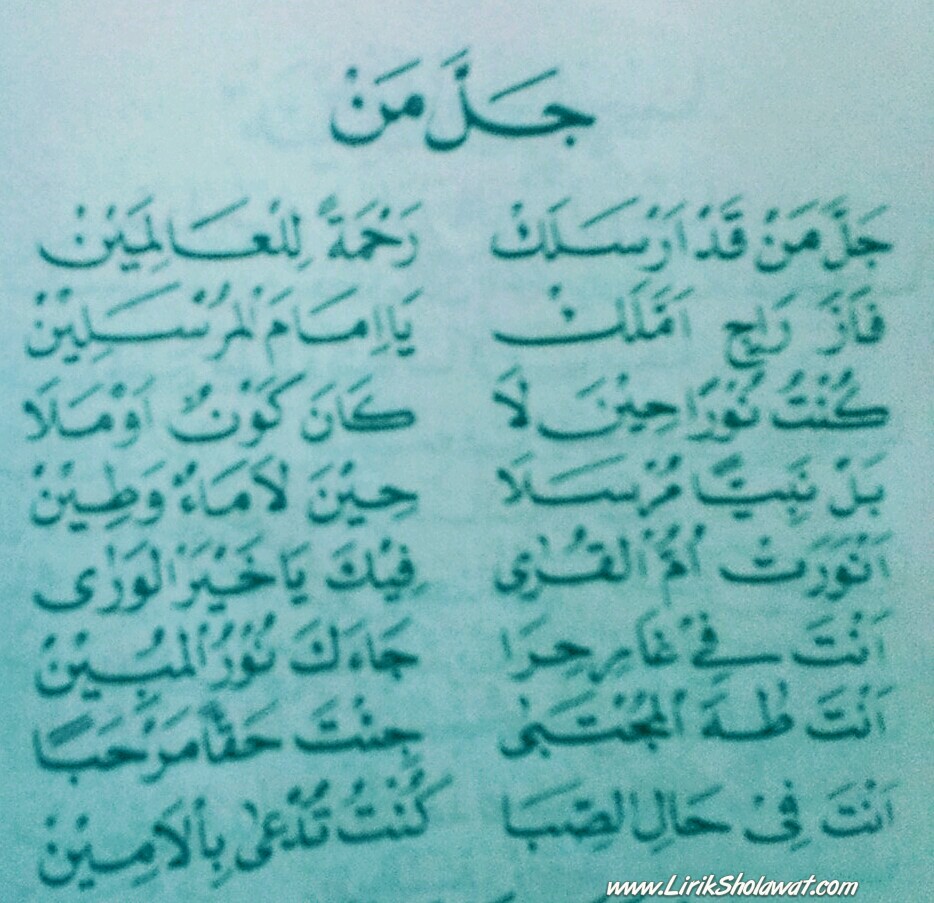 جَلَّ مَنْ
جَلَّ مَنْ قَدْ اَرْسَلَكْ رَحْمَةً لِلْعَالَمِيْنْ
فَازَ رَاجٍ اَمَّلَكْ يَااِمَامَ الْمُرْسَلِيْنْ
كُنْتُ نُوْرًا حِيْنَ لَا كَانَ كَوْنٌ اَوْ مَلَا
بَلْ نَبِيًّا مُرْسَلَا حِيْنَ لَامَاءُ وَطِيْنْ
اَنْوَرَتْ اُمُّ الْقُرٰى فِيْكَ يَاخَيْرَ الْوَرٰى
اَنْتَ فِيْ غَارِ حِرَا جَاءَكَ نُوْرُ الْمُبِيْنْ
اَنْتَ طٰهَ الْمُجْتَبٰى جِئْتَ حَقًّا مَرْحَبًا
اَنْتَ فِيْ حَالِ الصِّبَا كُنْتُ تُدْعٰى بِاْلاَمِيْنْ
www.LirikSholawat.com